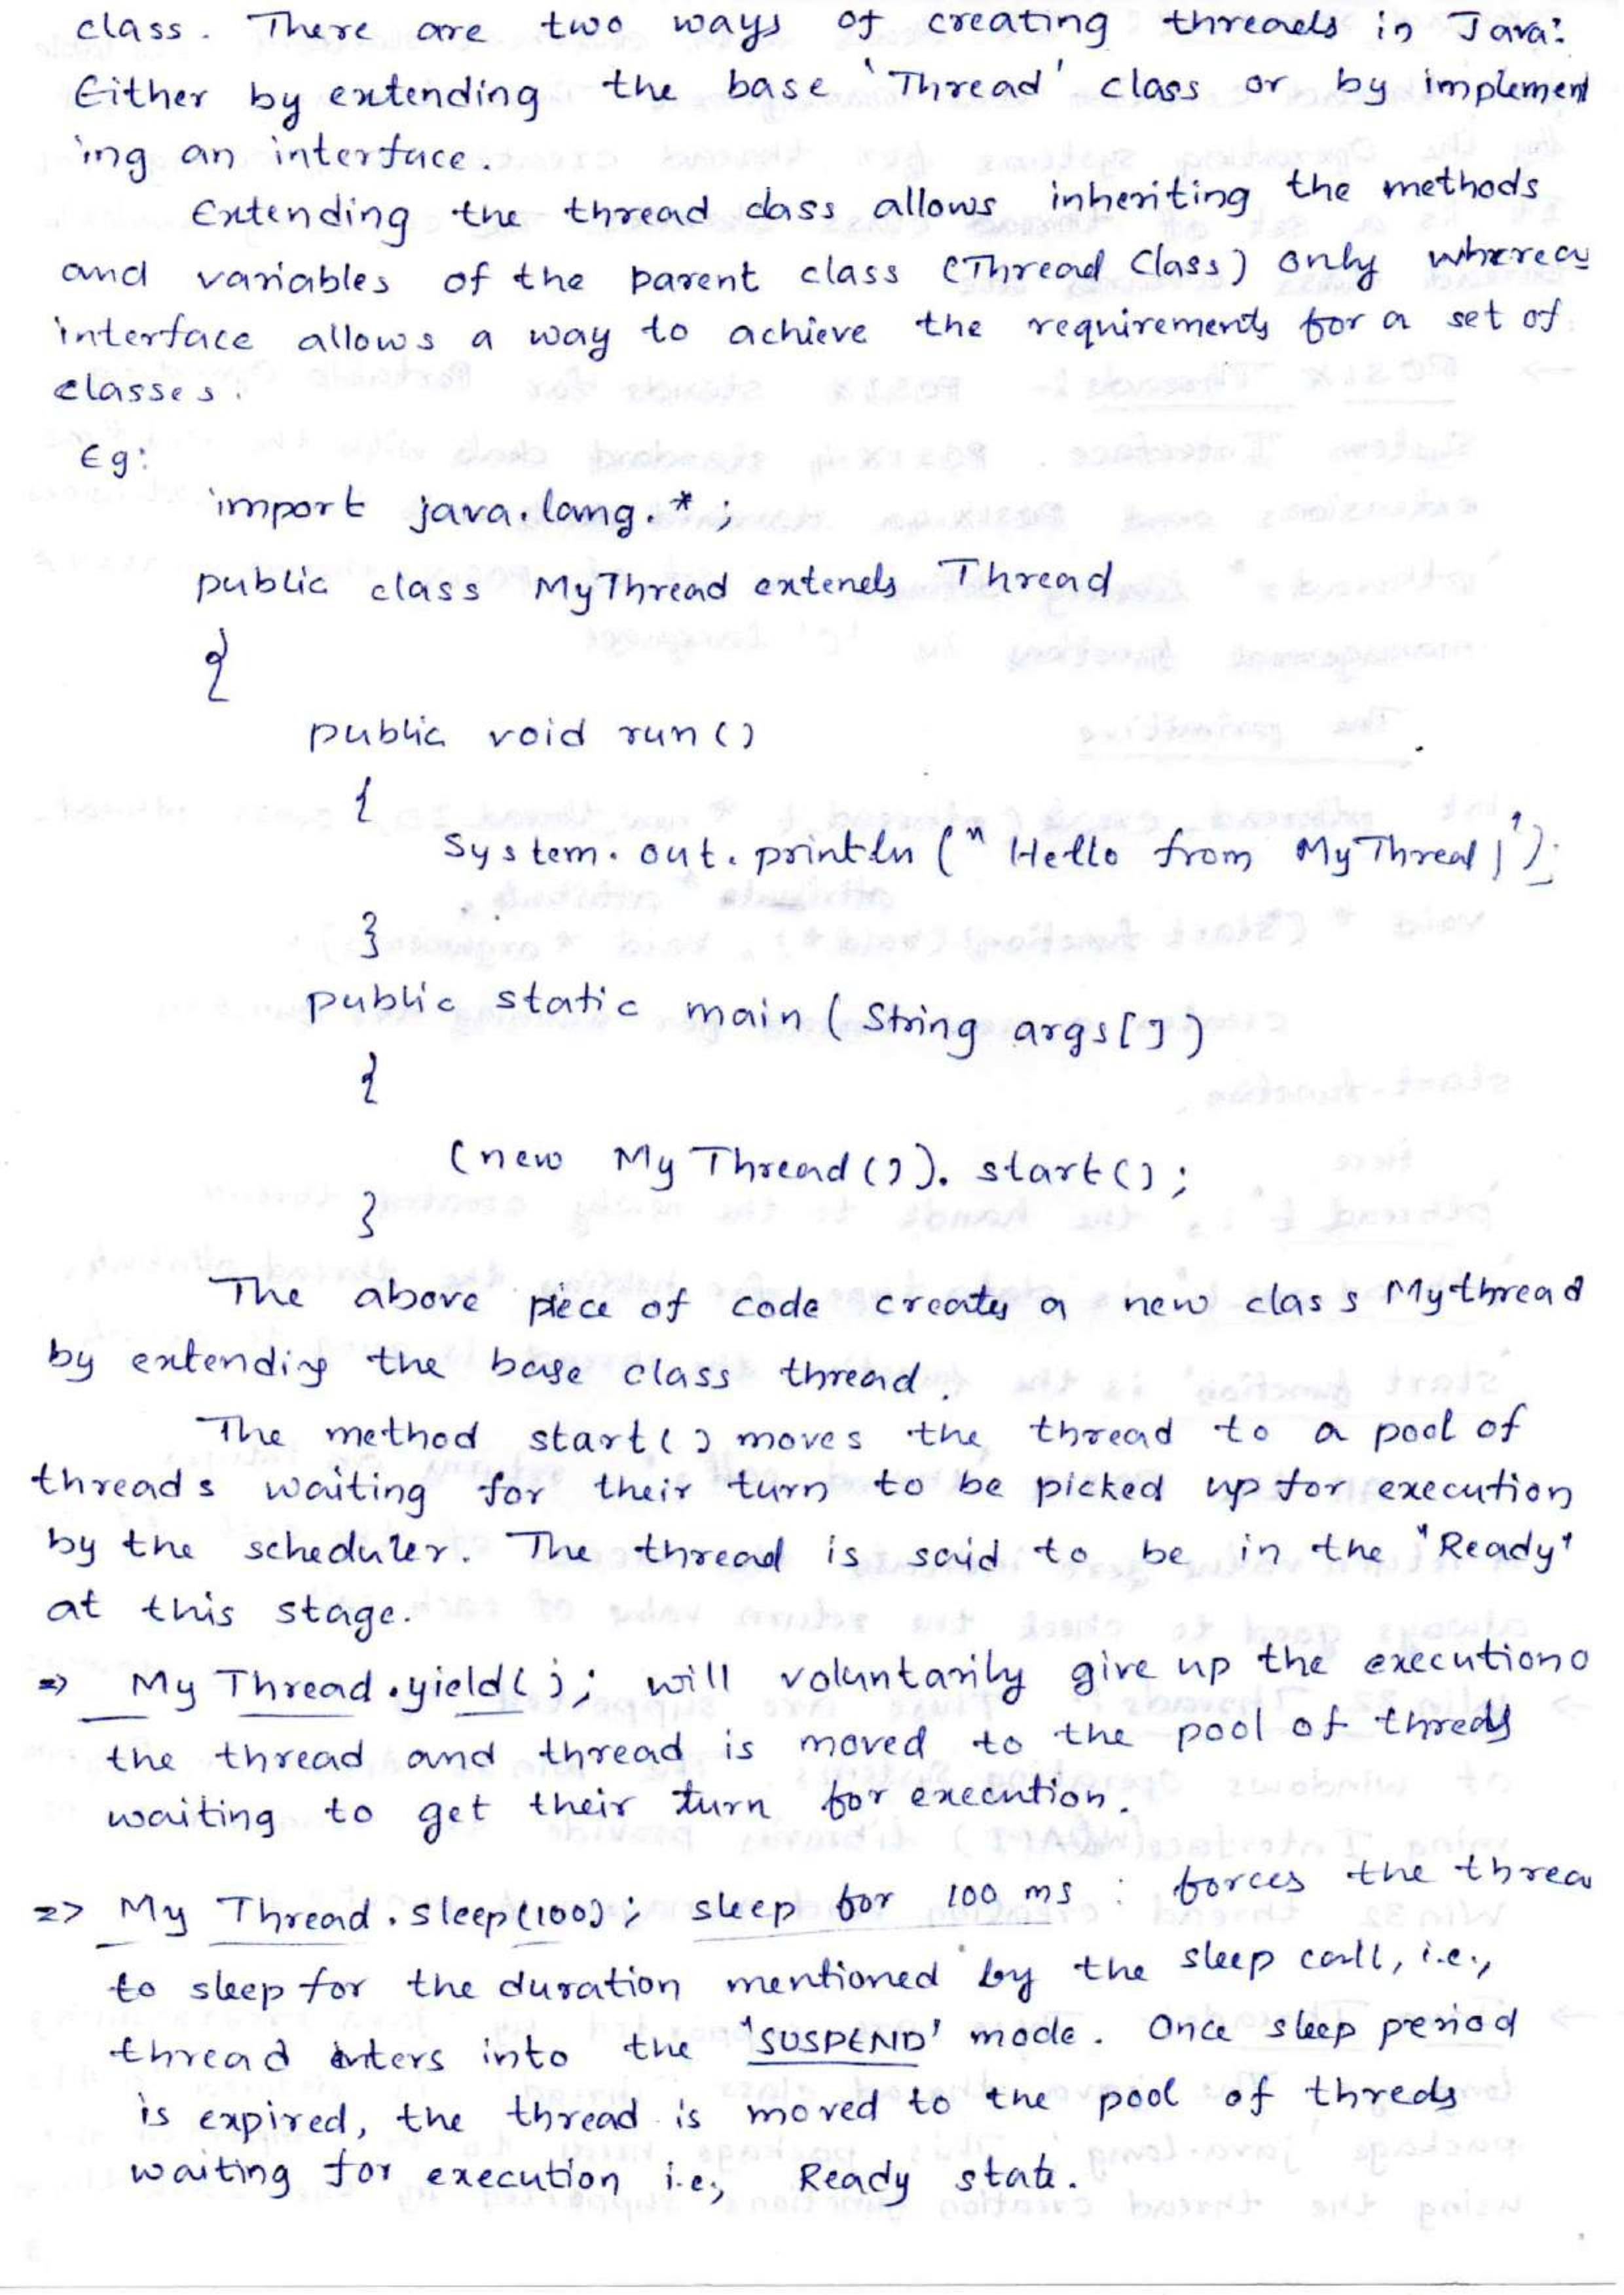 class. There are two ways of creating threads in Java:
Either by extending the base 'Thread' class or by implement
ing an interface.
Extending the thread class allows inheriting the methods
and variables of the parent class (Thread Class) only whereas
interface allows a way to achieve the requirements for a set of
classes.
Eg:
import java.lang.*;
public class MyThread extends Thread
{
public void run()
{
System.out.println("Hello from MyThread!");
}
public static main (String args[])
{
(new MyThread()).start();
}
The above piece of code creates a new class Mythread
by extending the base class thread.
The method start() moves the thread to a pool of
threads waiting for their turn to be picked up for execution
by the scheduler. The thread is said to be in the "Ready"
at this stage.
=> My Thread.yield(); will voluntarily give up the execution o
the thread and thread is moved to the pool of threds
waiting to get their turn for execution.
=> My Thread.sleep(100); sleep for 100 ms : forces the threa
to sleep for the duration mentioned by the sleep call, i.e.,
thread enters into the 'SUSPEND' mode. Once sleep period
is expired, the thread is moved to the pool of threds
waiting for execution i.e., Ready state.